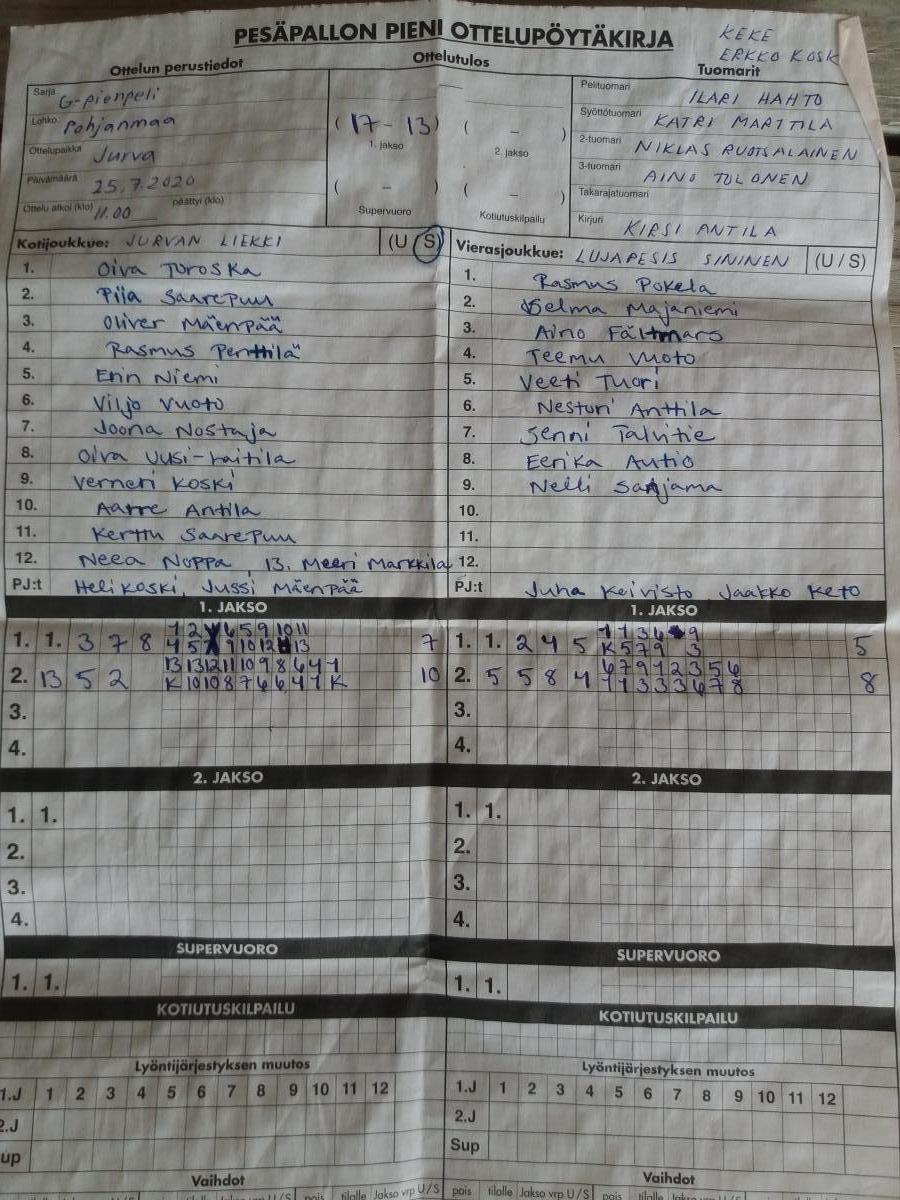 PESÄPALLON PIENI OTTELUPÖYTÄKIRJA
KEKE
ERKKO KOSK
Ottelun perustiedot
Sarja G-pienpeli
Lohko Pohjanmaa
Ottelupaikka Jurva
Päivämäärä 25.7.2020
Ottelu alkoi (klo) 11.00 päättyi (klo)
Ottelutulos
(17-13) ( - )
1. jakso 2. jakso
( - ) ( - )
Supervuoro Kotiutuskilpailu
Tuomarit
Pelituomari ILARI HAHTO
Syöttötuomari KATRI MARTTILA
2-tuomari NIKLAS RUOTSALAINEN
3-tuomari AINO TOLONEN
Takarajatuomari
Kirjuri KIRSI ANTILA
Kotijoukkue: JURVAN LIEKKI (U S)
1. Oiva Toroska
2. Piia Saarepuu
3. Oliver Mäenpää
4. Rasmus Penttilä
5. Erin Niemi
6. Viljo Vuoto
7. Joona Nostaja
8. Oiva Uusi-Raitila
9. Verneri Koski
10. Aarre Antila
11. Kerttu Saarepuu
12. Neea Noppa, 13. Meeri Markkila
PJ:t Heli Koski, Jussi Mäenpää
Vierasjoukkue: LUJAPESIS SININEN (U / S)
1. Rasmus Pokela
2. Selma Majaniemi
3. Aino Fältmars
4. Teemu Vuoto
5. Veeti Tuori
6. Nesturi Anttila
7. Jenni Talvitie
8. Eerika Autio
9. Nelli Sarjama
10.
11.
12.
PJ:t Juha Keivisto, Jaakko Keto
1. JAKSO
1. 1. 3 7 8 7
2. 13 5 2 10
3.
4.
1. JAKSO
1. 1. 2 4 5 5
2. 5 5 8 4 8
3.
4.
2. JAKSO
1. 1.
2.
3.
4.
2. JAKSO
1. 1.
2.
3.
4.
SUPERVUORO
1. 1.
SUPERVUORO
1. 1.
KOTIUTUSKILPAILU
KOTIUTUSKILPAILU
Lyöntijärjestyksen muutos
1.J 1 2 3 4 5 6 7 8 9 10 11 12
2.J
up
Lyöntijärjestyksen muutos
1.J 1 2 3 4 5 6 7 8 9 10 11 12
2.J
Sup
Vaihdot
tilalle Jakso vrp U/S pois tilalle Jakso vrp U/S
Vaihdot
pois tilalle Jakso vrp U/S pois tilalle Jakso vrp U/S